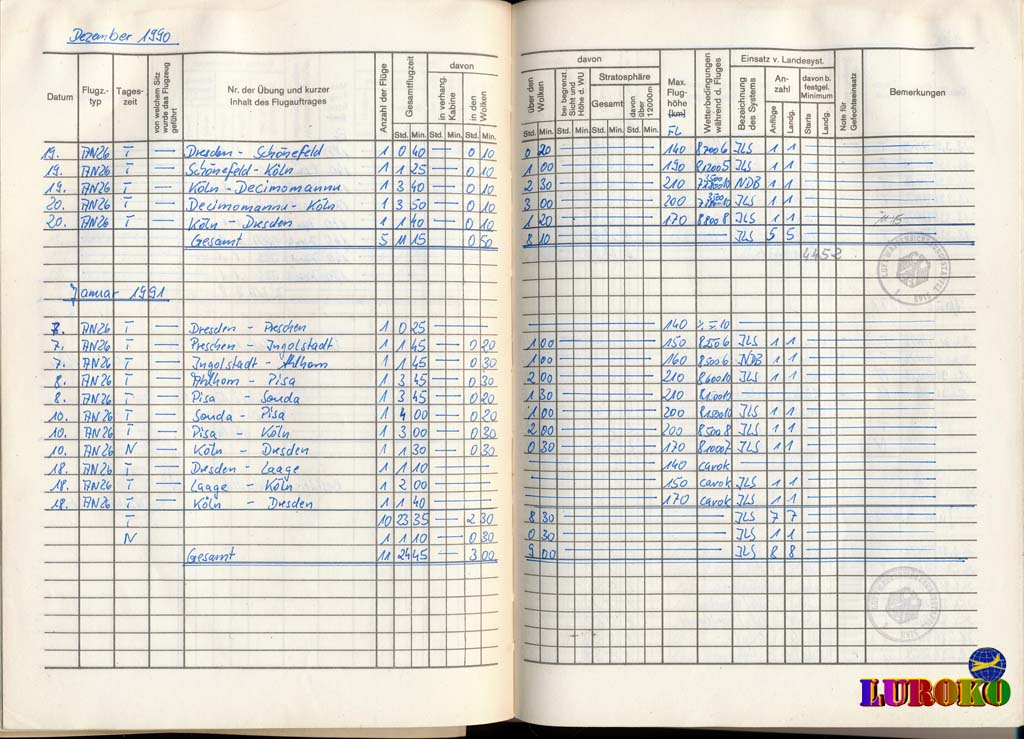 Dezember 1990
Datum Flugz.-typ Tages-zeit von welchem Sitz wurde das Flugzeug geführt Nr. der Übung und kurzer Inhalt des Flugauftrages Anzahl der Flüge Gesamtflugzeit davon in verhang. Kabine in den Wolken
Std. Min. Std. Min. Std. Min.
davon Einsatz v. Landesyst.
über den Wolken bei begrenzt Sicht und Höhe d. WU Stratosphäre Gesamt davon über 12000m Max. Flug-höhe [km] FL Wetterbedingungen während d. Fluges Bezeichnung des Systems An-zahl Anflüge Landg. davon b. festgel. Minimum Starts Landg. Note für Gefechtseinsatz Bemerkungen
Std. Min. Std. Min. Std. Min. Std. Min.
19. AN26 T — Dresden - Schönefeld 1 0 40 — 0 10 0 20 140 8 700 6 JLS 1 1
19. AN26 T — Schönefeld - Köln 1 1 25 — 0 10 1 00 190 8 1200 5 JLS 1 1
19. AN26 T — Köln - Decimomannu 1 3 40 — 0 10 2 30 210 NDB 1 1
20. AN26 T — Decimomannu - Köln 1 3 50 — 0 10 3 00 200 JLS 1 1
20. AN26 T — Köln - Dresden 1 1 40 — 0 10 1 20 170 8 800 8 JLS 1 1 11.15
Gesamt 5 11 15 0 50 8 10 JLS 5 5
4452
Januar 1991
7. AN26 T — Dresden - Preschen 1 0 25 — 140
7. AN26 T — Preschen - Ingolstadt 1 1 45 — 0 20 1 00 150 8 250 6 JLS 1 1
7. AN26 T — Ingolstadt - Ahlhorn 1 1 45 — 0 30 1 00 160 8 500 6 NDB 1 1
8. AN26 T — Ahlhorn - Pisa 1 3 45 — 0 30 2 00 210 8 600 10 JLS 1 1
8. AN26 T — Pisa - Souda 1 3 45 — 0 20 1 30 210
10. AN26 T — Souda - Pisa 1 4 00 — 0 20 1 00 200 8 1500 10 JLS 1 1
10. AN26 T — Pisa - Köln 1 3 00 — 0 30 2 00 200 8 500 8 JLS 1 1
10. AN26 N — Köln - Dresden 1 1 30 — 0 30 0 30 170 8 1000 7 JLS 1 1
18. AN26 T — Dresden - Laage 1 1 10 — 140 cavok
18. AN26 T — Laage - Köln 1 2 00 — 150 cavok JLS 1 1
18. AN26 T — Köln - Dresden 1 1 40 — 170 cavok JLS 1 1
T 10 23 35 — 2 30 8 30 JLS 7 7
N 1 1 10 — 0 30 0 30 JLS 1 1
Gesamt 11 24 45 — 3 00 9 00 JLS 8 8
LUROKO